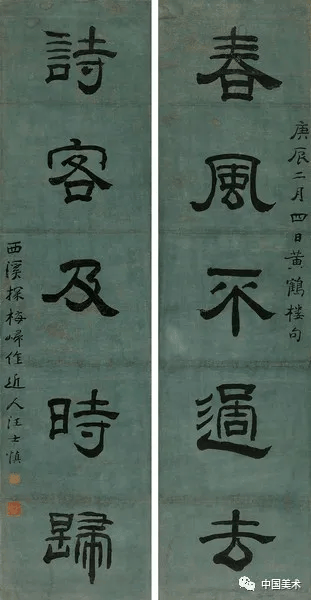 庚辰二月四日黃鶴樓句
春風不過去
詩客及時歸
西溪探梅歸作近人汪士慎
中国美术